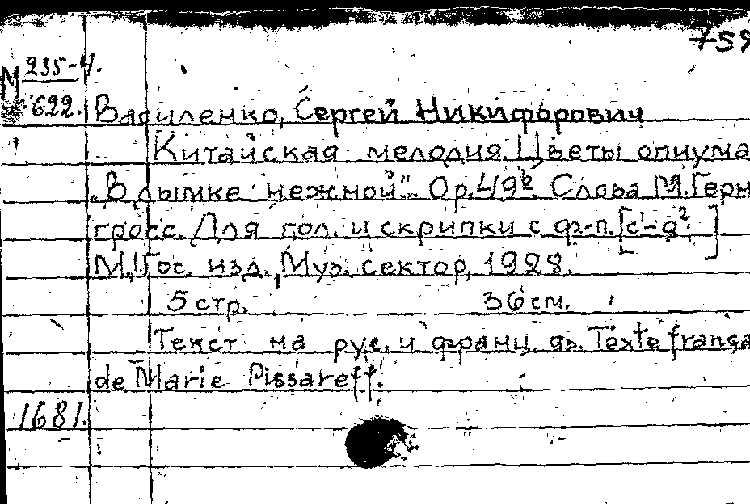 759
М 235-4.
622. Василенко, Сергей Никифорович
Китайская мелодия. Цветы опиума
„В дымке нежной". Ор. 49 b. Слова М. Герн
гросс. Для гол. и скрипки с ф-п. [c'-g²]
М., Гос. изд., Муз. сектор, 1928.
5 стр. 36 см.
Текст на рус. и франц. яз. Texte frança
de Marie Pissareff.
1681.